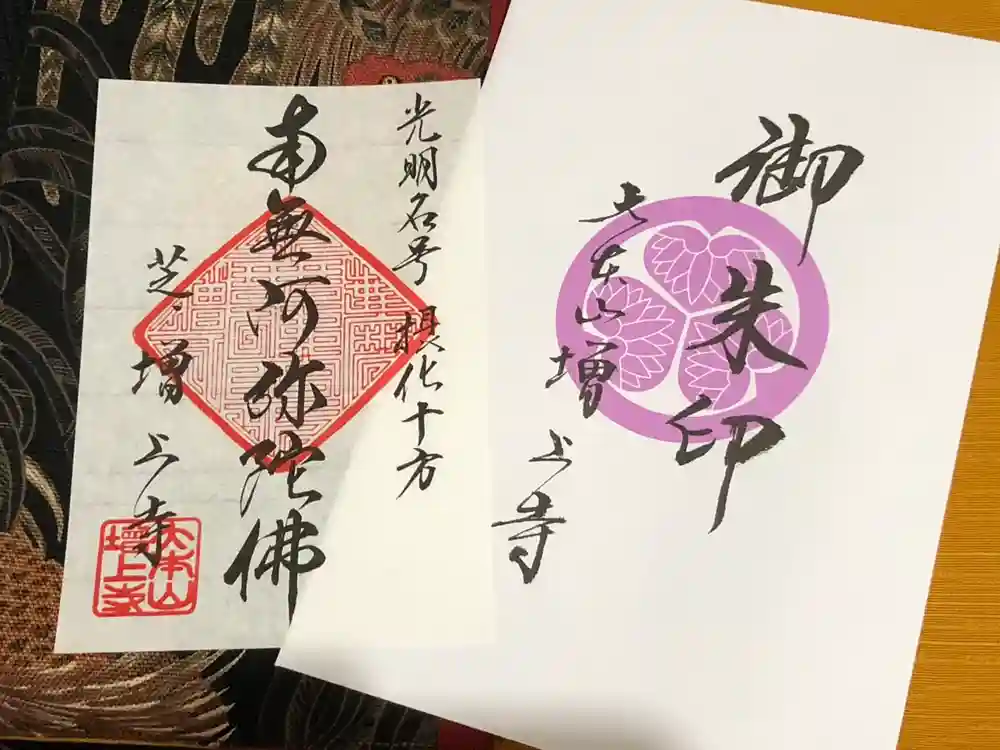 御朱印
大本山 増上寺
光明名号 摂化十方
南無阿弥陀佛
芝・増上寺
大本山
増上寺